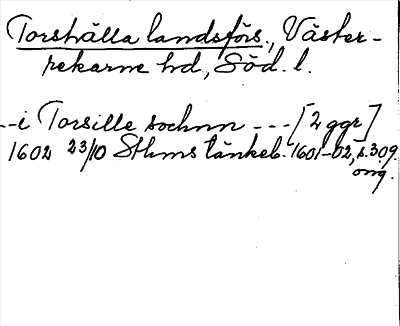 Torshälla landsförs., Väster-
rekarne hd, Söd. l.
--i Torsille sochnn --- [2 ggr]
1602 23/10 Sthms tänkeb. 1601-02, s. 309.
orig.